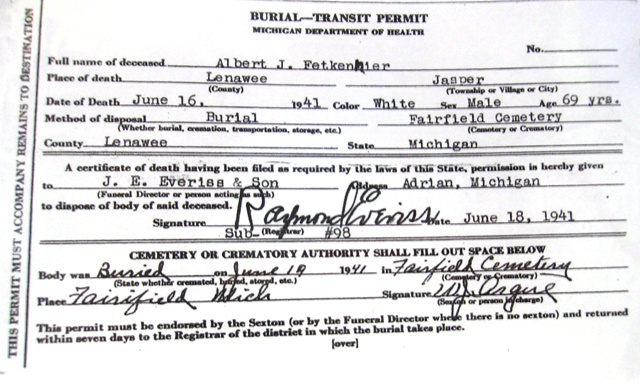 BURIAL—TRANSIT PERMIT
MICHIGAN DEPARTMENT OF HEALTH
No.
Full name of deceased Albert J. Fetkenhier
Place of death Lenawee Jasper
(County) (Township or Village or City)
Date of Death June 16, 1941 Color White Sex Male Age 69 yrs.
Method of disposal Burial Fairfield Cemetery
(Whether burial, cremation, transportation, storage, etc.) (Cemetery or Crematory)
County Lenawee State Michigan
A certificate of death having been filed as required by the laws of this State, permission is hereby given
to J. E. Everiss & Son Address Adrian, Michigan
(Funeral Director or person acting as such)
to dispose of body of said deceased.
Signature Raymond Everiss Date June 18, 1941
Sub- (Registrar) #98
CEMETERY OR CREMATORY AUTHORITY SHALL FILL OUT SPACE BELOW
Body was Buried on June 19 1941 in Fairfield Cemetery
(State whether cremated, buried, stored, etc.) (Cemetery or Crematory)
Place Fairfield Mich Signature
(Sexton or person in charge)
This permit must be endorsed by the Sexton (or by the Funeral Director where there is no sexton) and returned
within seven days to the Registrar of the district in which the burial takes place.
[over]
THIS PERMIT MUST ACCOMPANY REMAINS TO DESTINATION